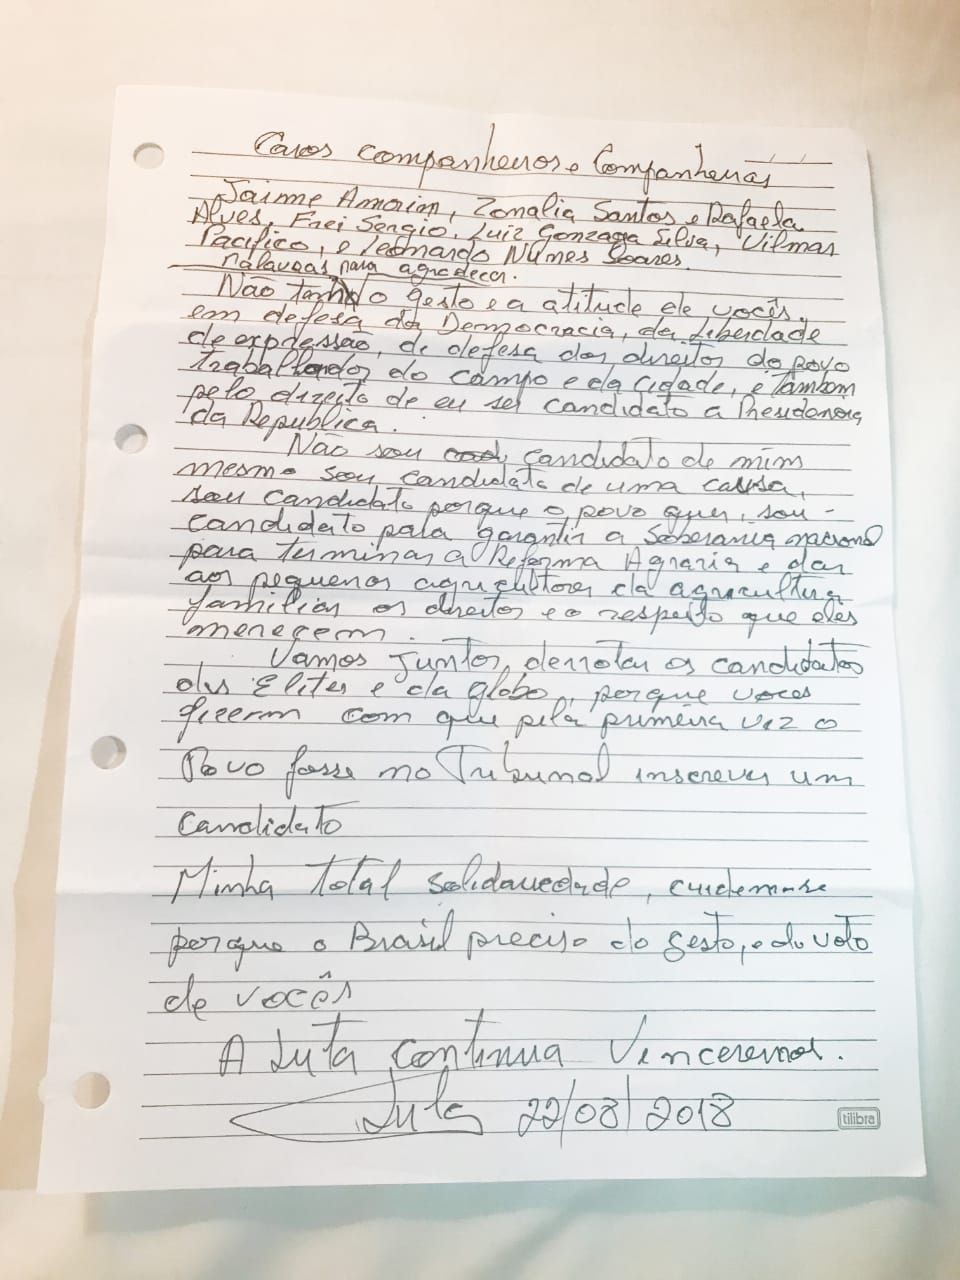 Caros companheiros e Companheiras
Jaime Amorim, Zonalia Santos e Rafaela
Alves, Frei Sergio, Luiz Gonzaga Silva, Vilmar
Pacifico, e Leonardo Nunes Soares.
Não tenho palavras para agradecer
o gesto e a atitude de vocês,
em defesa da Democracia, da Liberdade
de expressão, de defesa dos direitos do povo
trabalhador do campo e da cidade, e também
pelo direito de eu ser candidato a Presidencia
da Republica.
Não sou candidato de mim
mesmo sou candidato de uma causa,
sou candidato porque o povo quer, sou
candidato para garantir a Soberania nacional
para terminar a Reforma Agraria e dar
aos pequenos agricultores da agricultura
familiar os direitos e o respeito que eles
merecem.
Vamos juntos, derrotar os candidatos
das Elites e da globo, porque voces
fizerm com que pela primeira vez o
Povo fosse no Tribunal inscrever um
candidato
Minha total solidariedade, cuidem-se
porque o Brasil precisa do gesto, e do voto
de vocês
A Luta continua Venceremos.
Lula 22/08/2018
tilibra